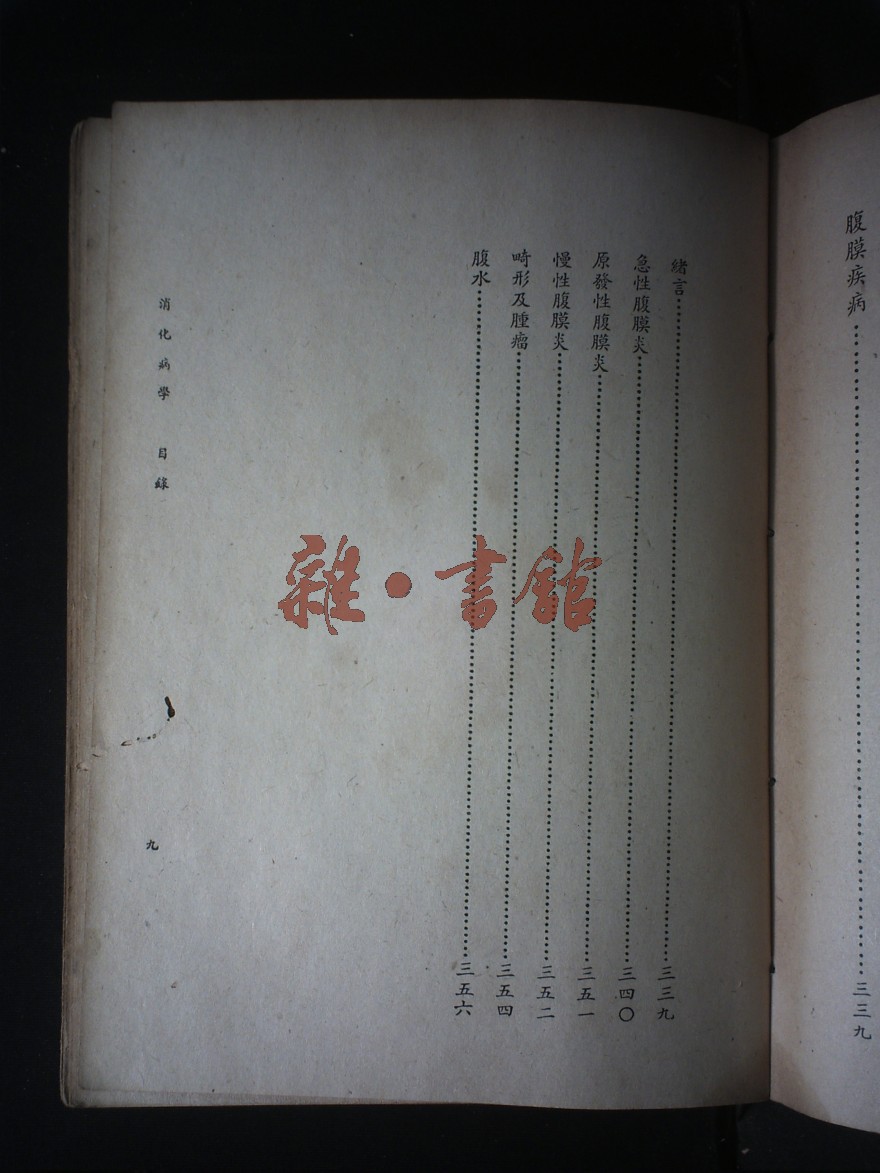 腹膜疾病……三三九
緒言……三三九
急性腹膜炎……三四〇
原發性腹膜炎……三五一
慢性腹膜炎……三五二
畸形及腫瘤……三五四
腹水……三五六
消化病學 目錄
九
雜·書館